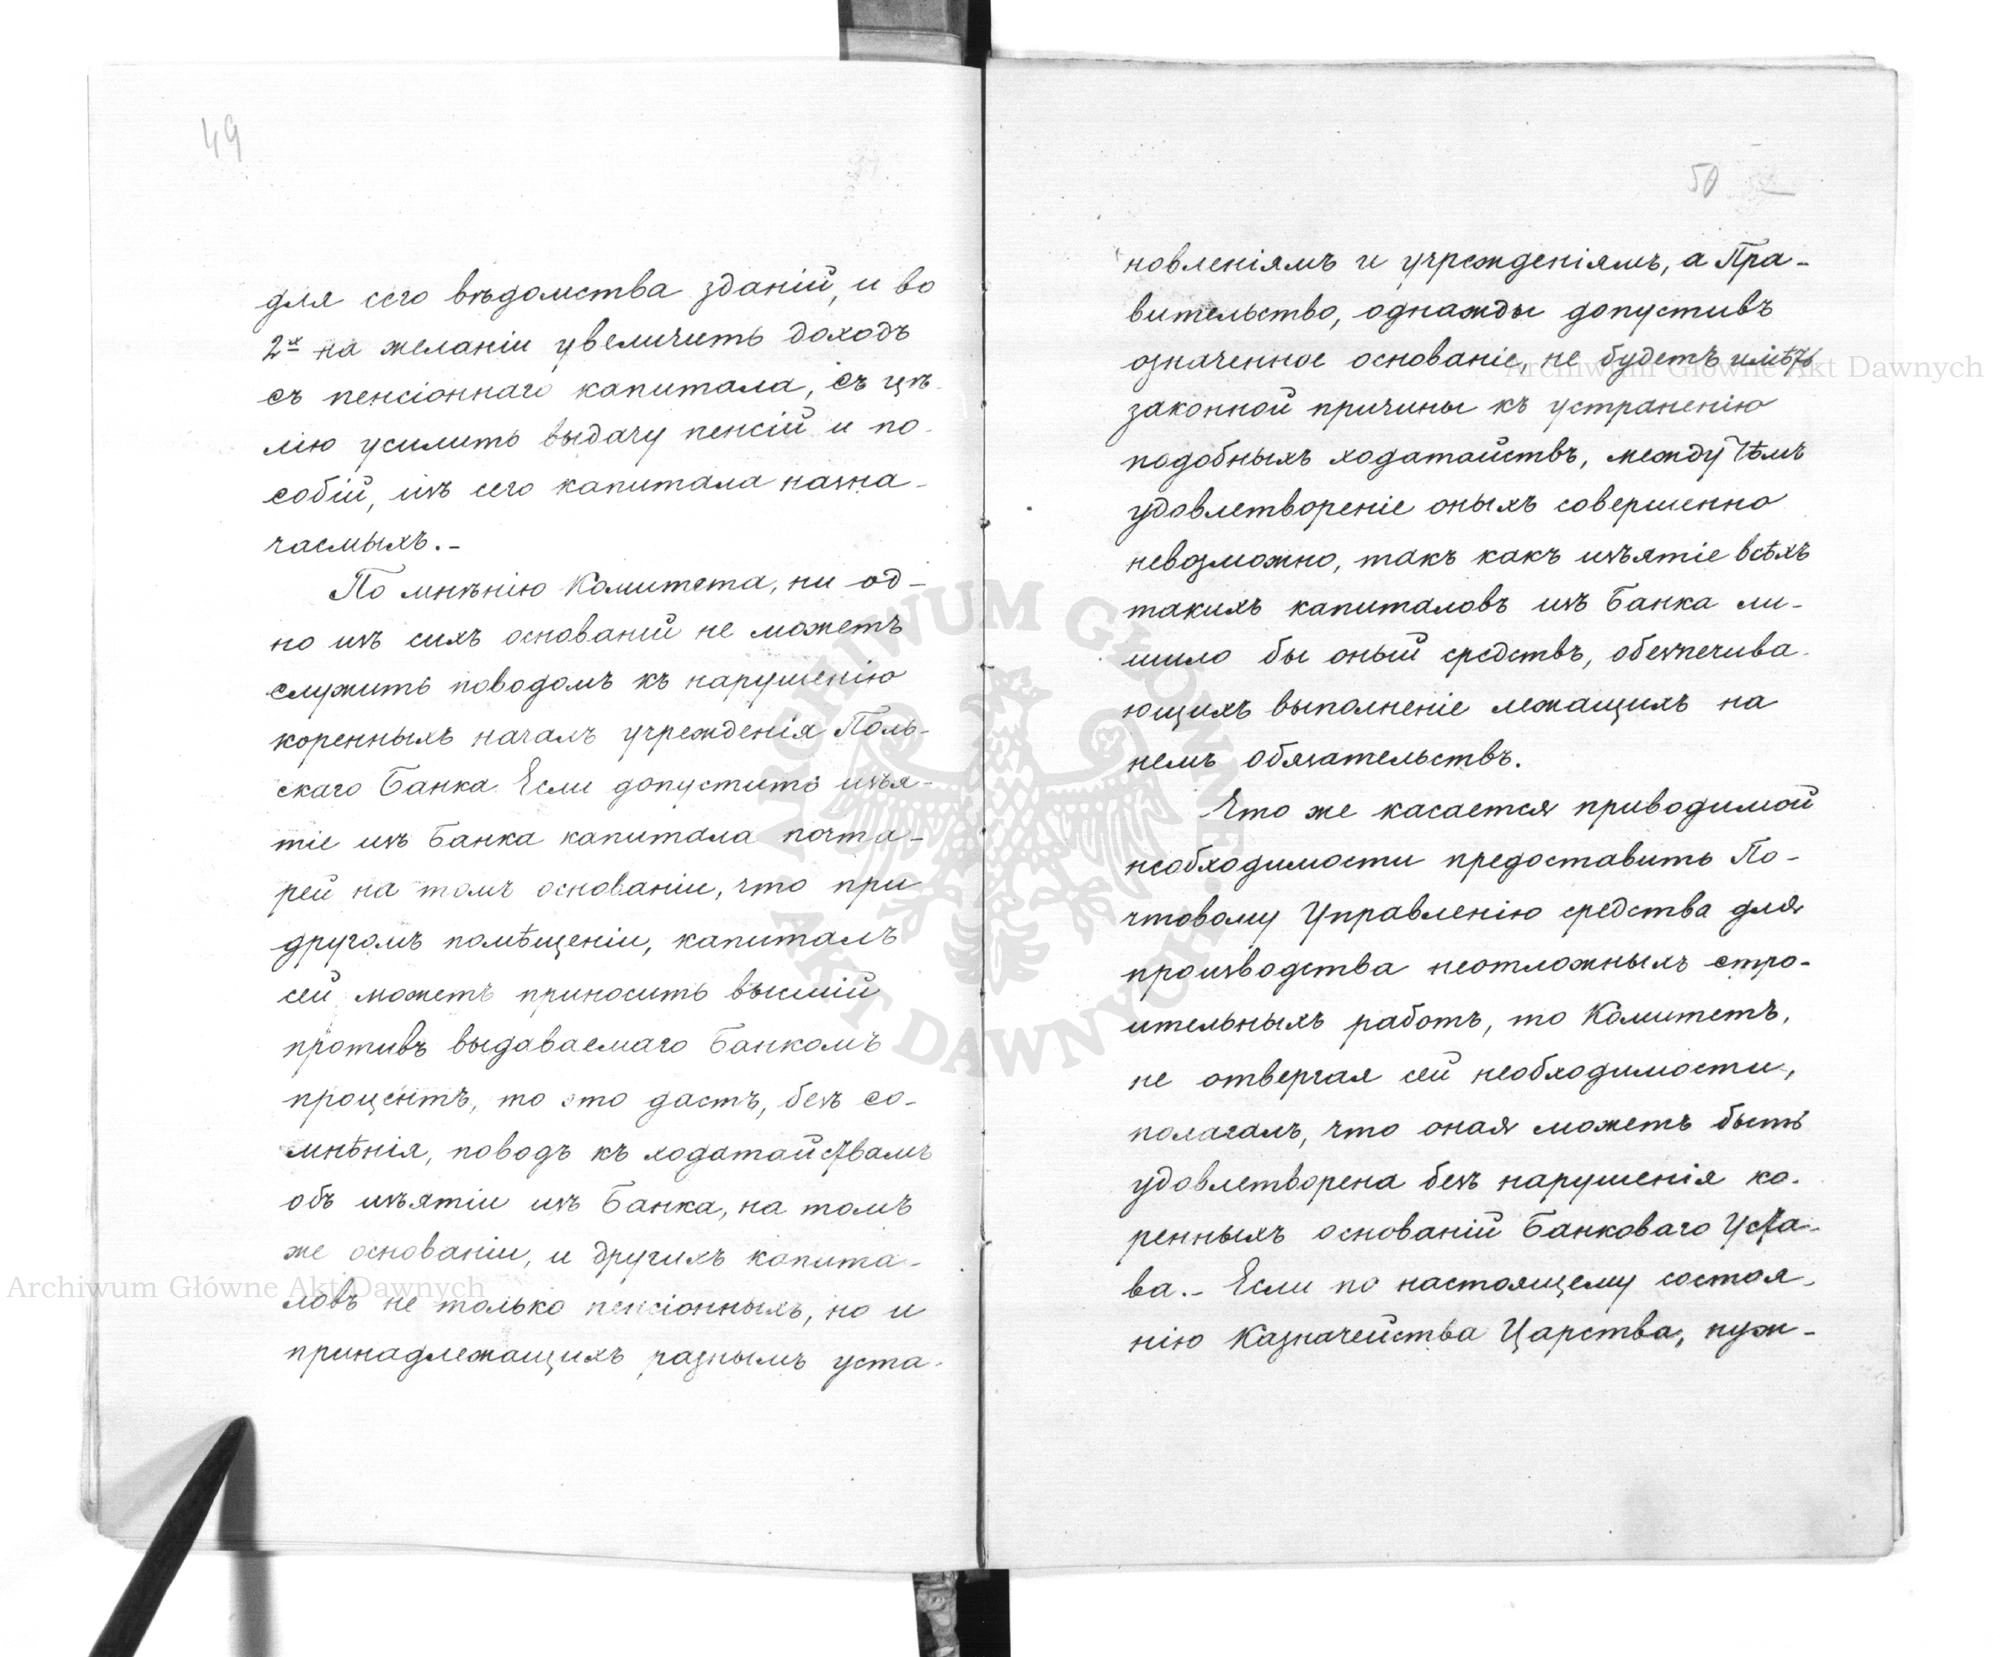 49
для сего вѣдомства зданій, и во
2х на желаніи увеличить доходъ
съ пенсіоннаго капитала, съ цѣ-
лію усилить выдачу пенсій и по-
собій, изъ сего капитала назна-
чаемыхъ.-
По мнѣнію Комитета, ни од-
но изъ сихъ основаній не можетъ
служить поводомъ къ нарушенію
коренныхъ началъ учрежденія Поль-
скаго Банка. Если допустить изъя-
тіе изъ Банка капитала почта-
рей на томъ основаніи, что при
другомъ помѣщеніи, капиталъ
сей можетъ приносить высшій
противъ выдаваемаго Банкомъ
процентъ, то это дастъ, безъ со-
мнѣнія, поводъ къ ходатайствамъ
объ изъятіи изъ Банка, на томъ
же основаніи, и другихъ капита-
ловъ не только пенсіонныхъ, но и
принадлежащихъ разнымъ уста-
50
новленіямъ и учрежденіямъ, а Пра-
вительство, однажды допустивъ
означенное основаніе, не будетъ имѣть
законной причины къ устраненію
подобныхъ ходатайствъ, между тѣмъ
удовлетвореніе оныхъ совершенно
невозможно, такъ какъ изъятіе всѣхъ
такихъ капиталовъ изъ Банка ли-
шило бы оный средствъ, обезпечива-
ющихъ выполненіе лежащихъ на
немъ обязательствъ.
Что же касается приводимой
необходимости предоставить По-
чтовому Управленію средства для
производства неотложныхъ стро-
ительныхъ работъ, то Комитетъ,
не отвергая сей необходимости,
полагалъ, что оная можетъ быть
удовлетворена безъ нарушенія ко-
ренныхъ основаній Банковаго Уста-
ва.- Если по настоящему состоя-
нію Казначейства Царства, нуж-
Archiwum Główne Akt Dawnych
Archiwum Główne Akt Dawnych
ARCHIWUM GŁÓWNE AKT DAWNYCH